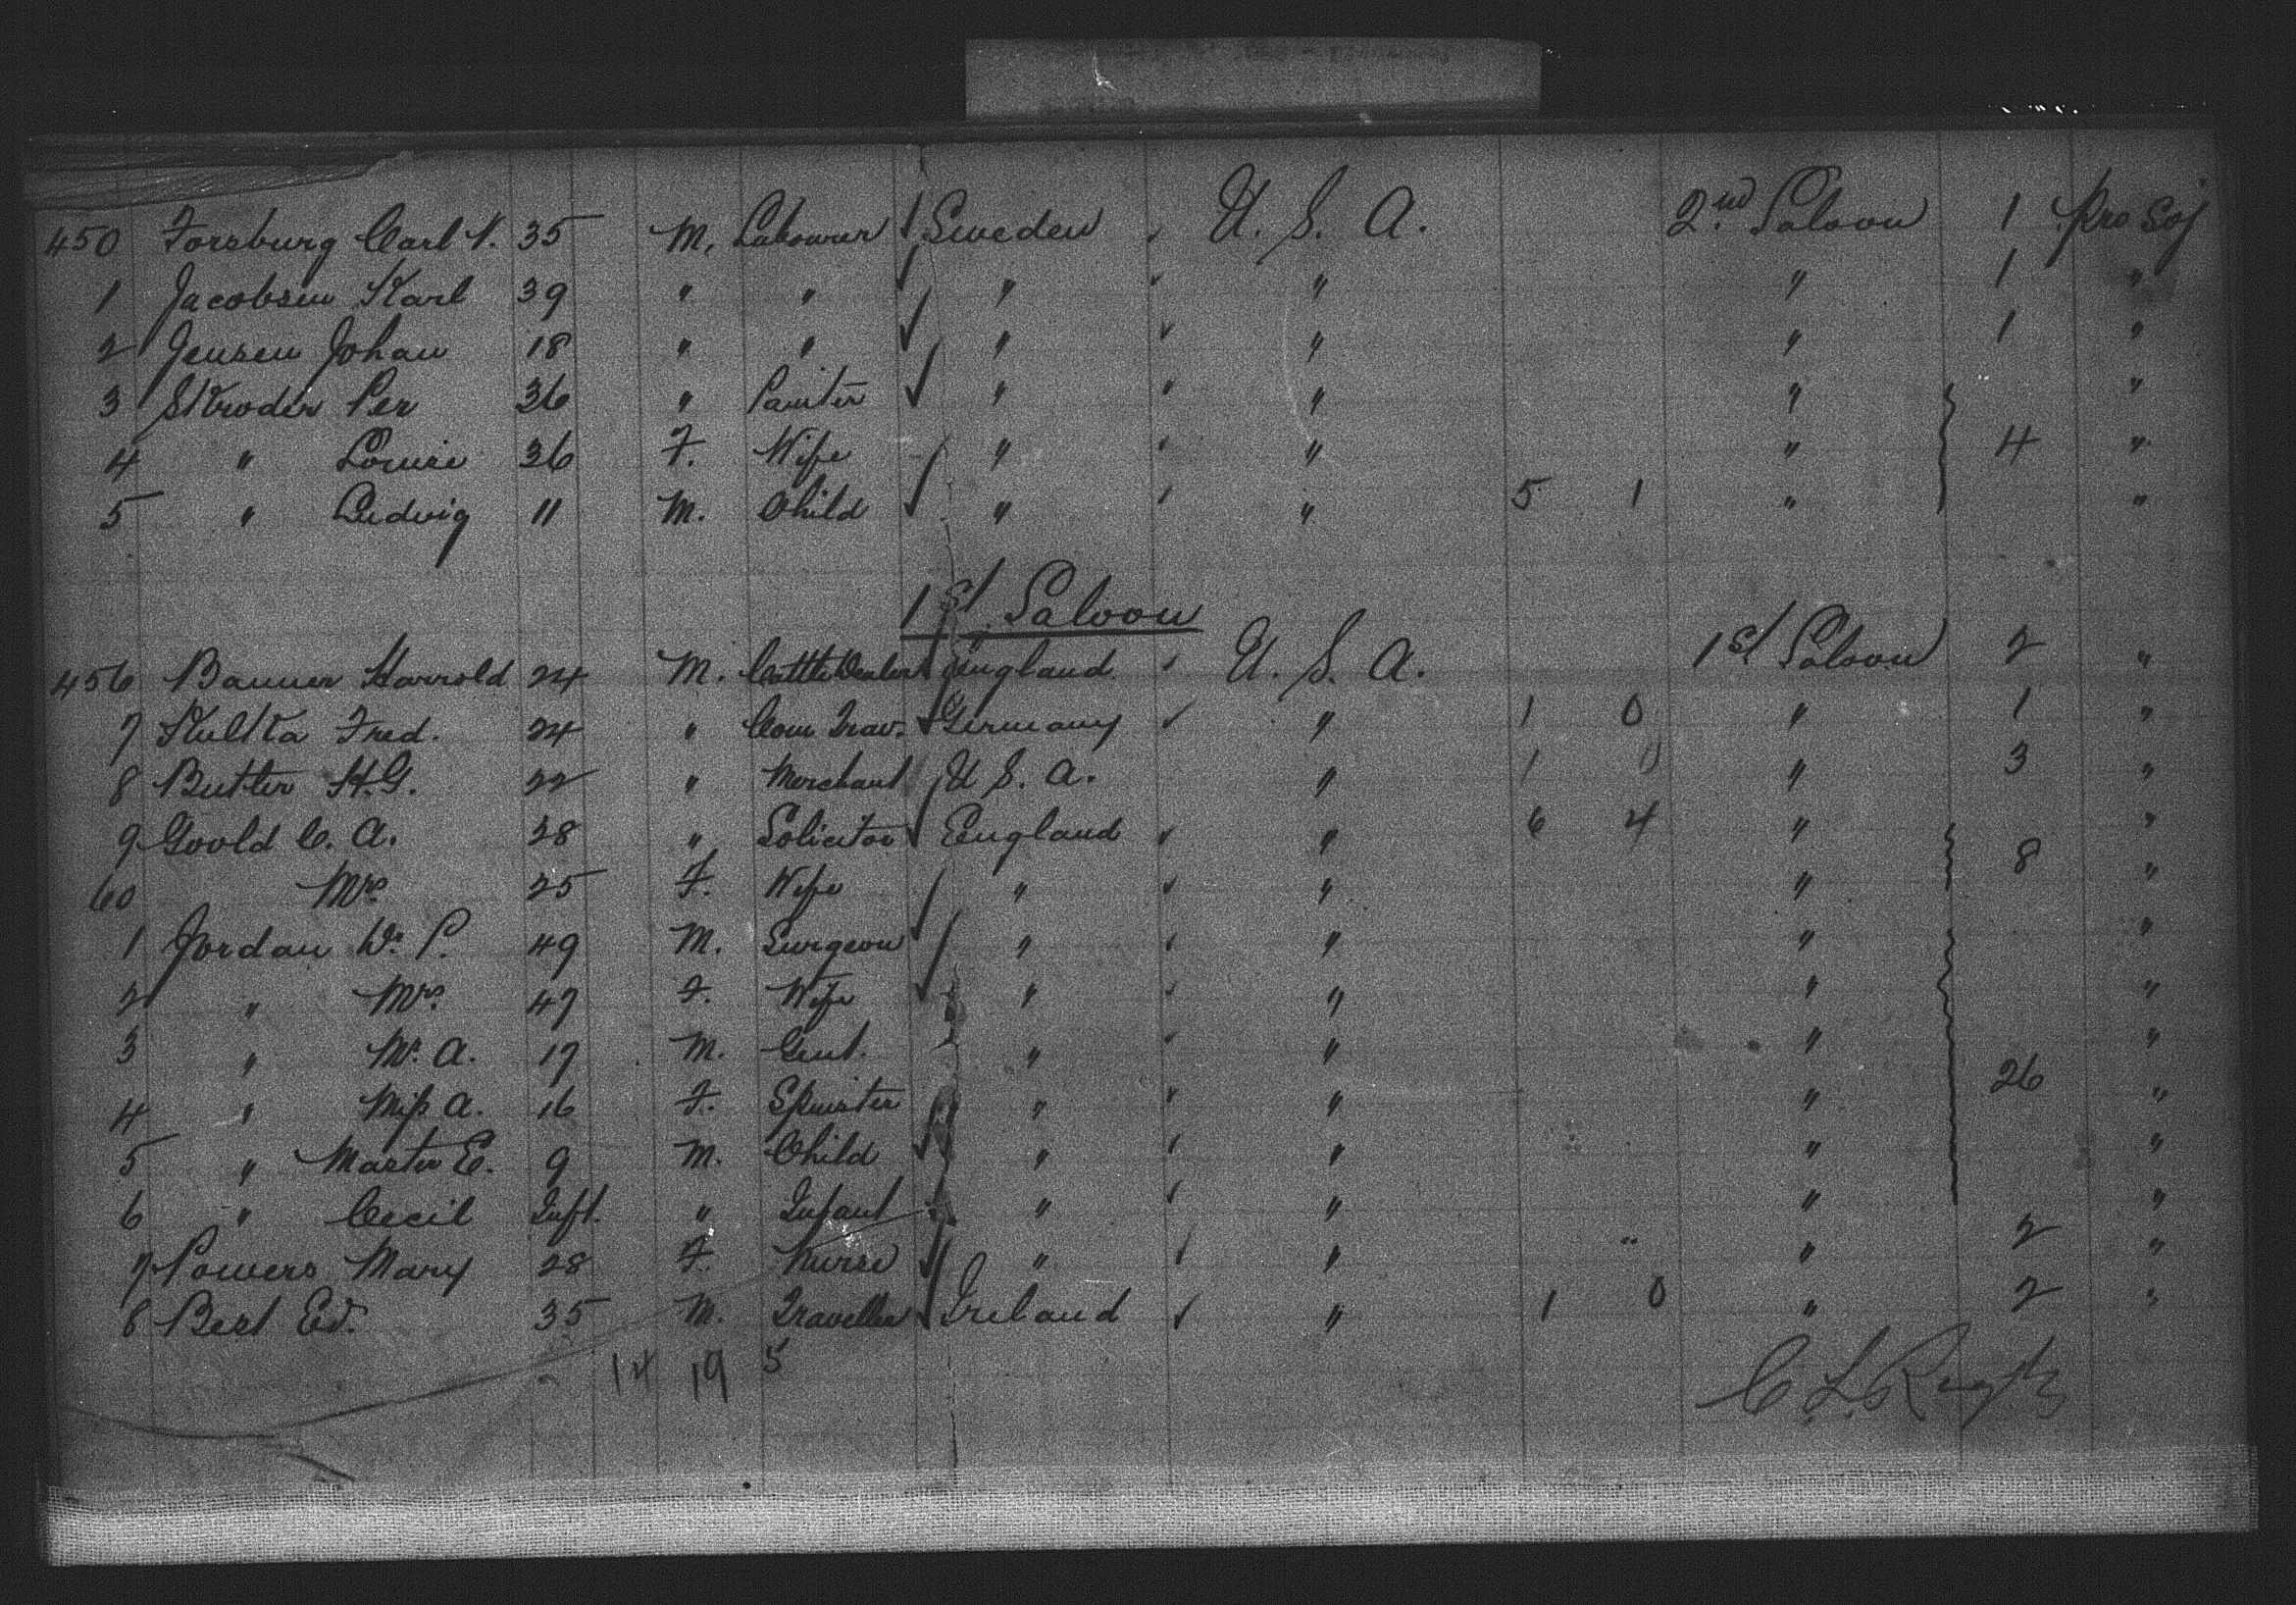 450 Forsburg Carl V. 35 M. Labourer Sweden U. S. A. 2nd Saloon 1 Pro Soj
1 Jacobsen Karl 39 " " " " " 1 "
2 Jensen Johan 18 " " " " " 1 "
3 Skroder Per 36 " Painter " " " "
4 " Louise 36 F. Wife " " " 4 "
5 " Ludwig 11 M. Child " " 5 1 " "
1st Saloon
456 Banner Harrold 24 M. Cattle Dealer England U. S. A. 1st Saloon 2 "
7 Fred. 24 " Com Trav. Germany " 1 0 " 1 "
8 Butler H.G. 22 " Merchant U. S. A. " 1 0 " 3 "
9 Goold C. A. 28 " Solicitor England " 6 4 " "
60 Mrs 25 F. Wife " " " 8 "
1 Jordan Dr. P. 49 M. Surgeon " " " "
2 " Mrs. 47 F. Wife " " " "
3 " Mr. A. 17 M. Gent. " " " "
4 " Miss A. 16 F. Spinster " " " 26 "
5 " Master E. 9 M. Child " " " "
6 " Cecil Inft. " Infant " " " "
7 Powers Mary 28 F. Nurse " " " 2 "
8 Best Ed. 35 M. Traveller Ireland " 1 0 " 2 "
19 5
C. L.